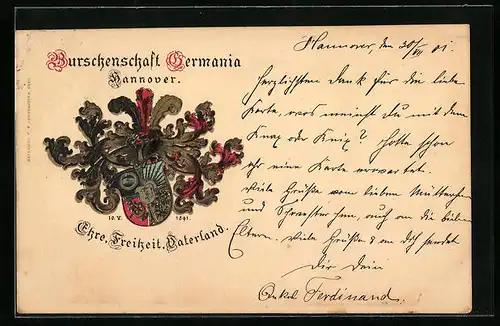 Burschenschaft Germania
Hannover.
10. V. 1891.
Ehre. Freiheit. Vaterland.
Hannover, den 30/VII 01.
Herzlichsten Dank für die liebe
Karte, was meinst du mit dem
Knax oder Knix? Hatte schon
oft eine Karte erwartet.
Viele Grüße vom lieben Mütterchen
und Schwesterchen, auch an die lieben
Eltern. Viele Grüße an dich sendet
Dir Dein
Onkel Ferdinand.